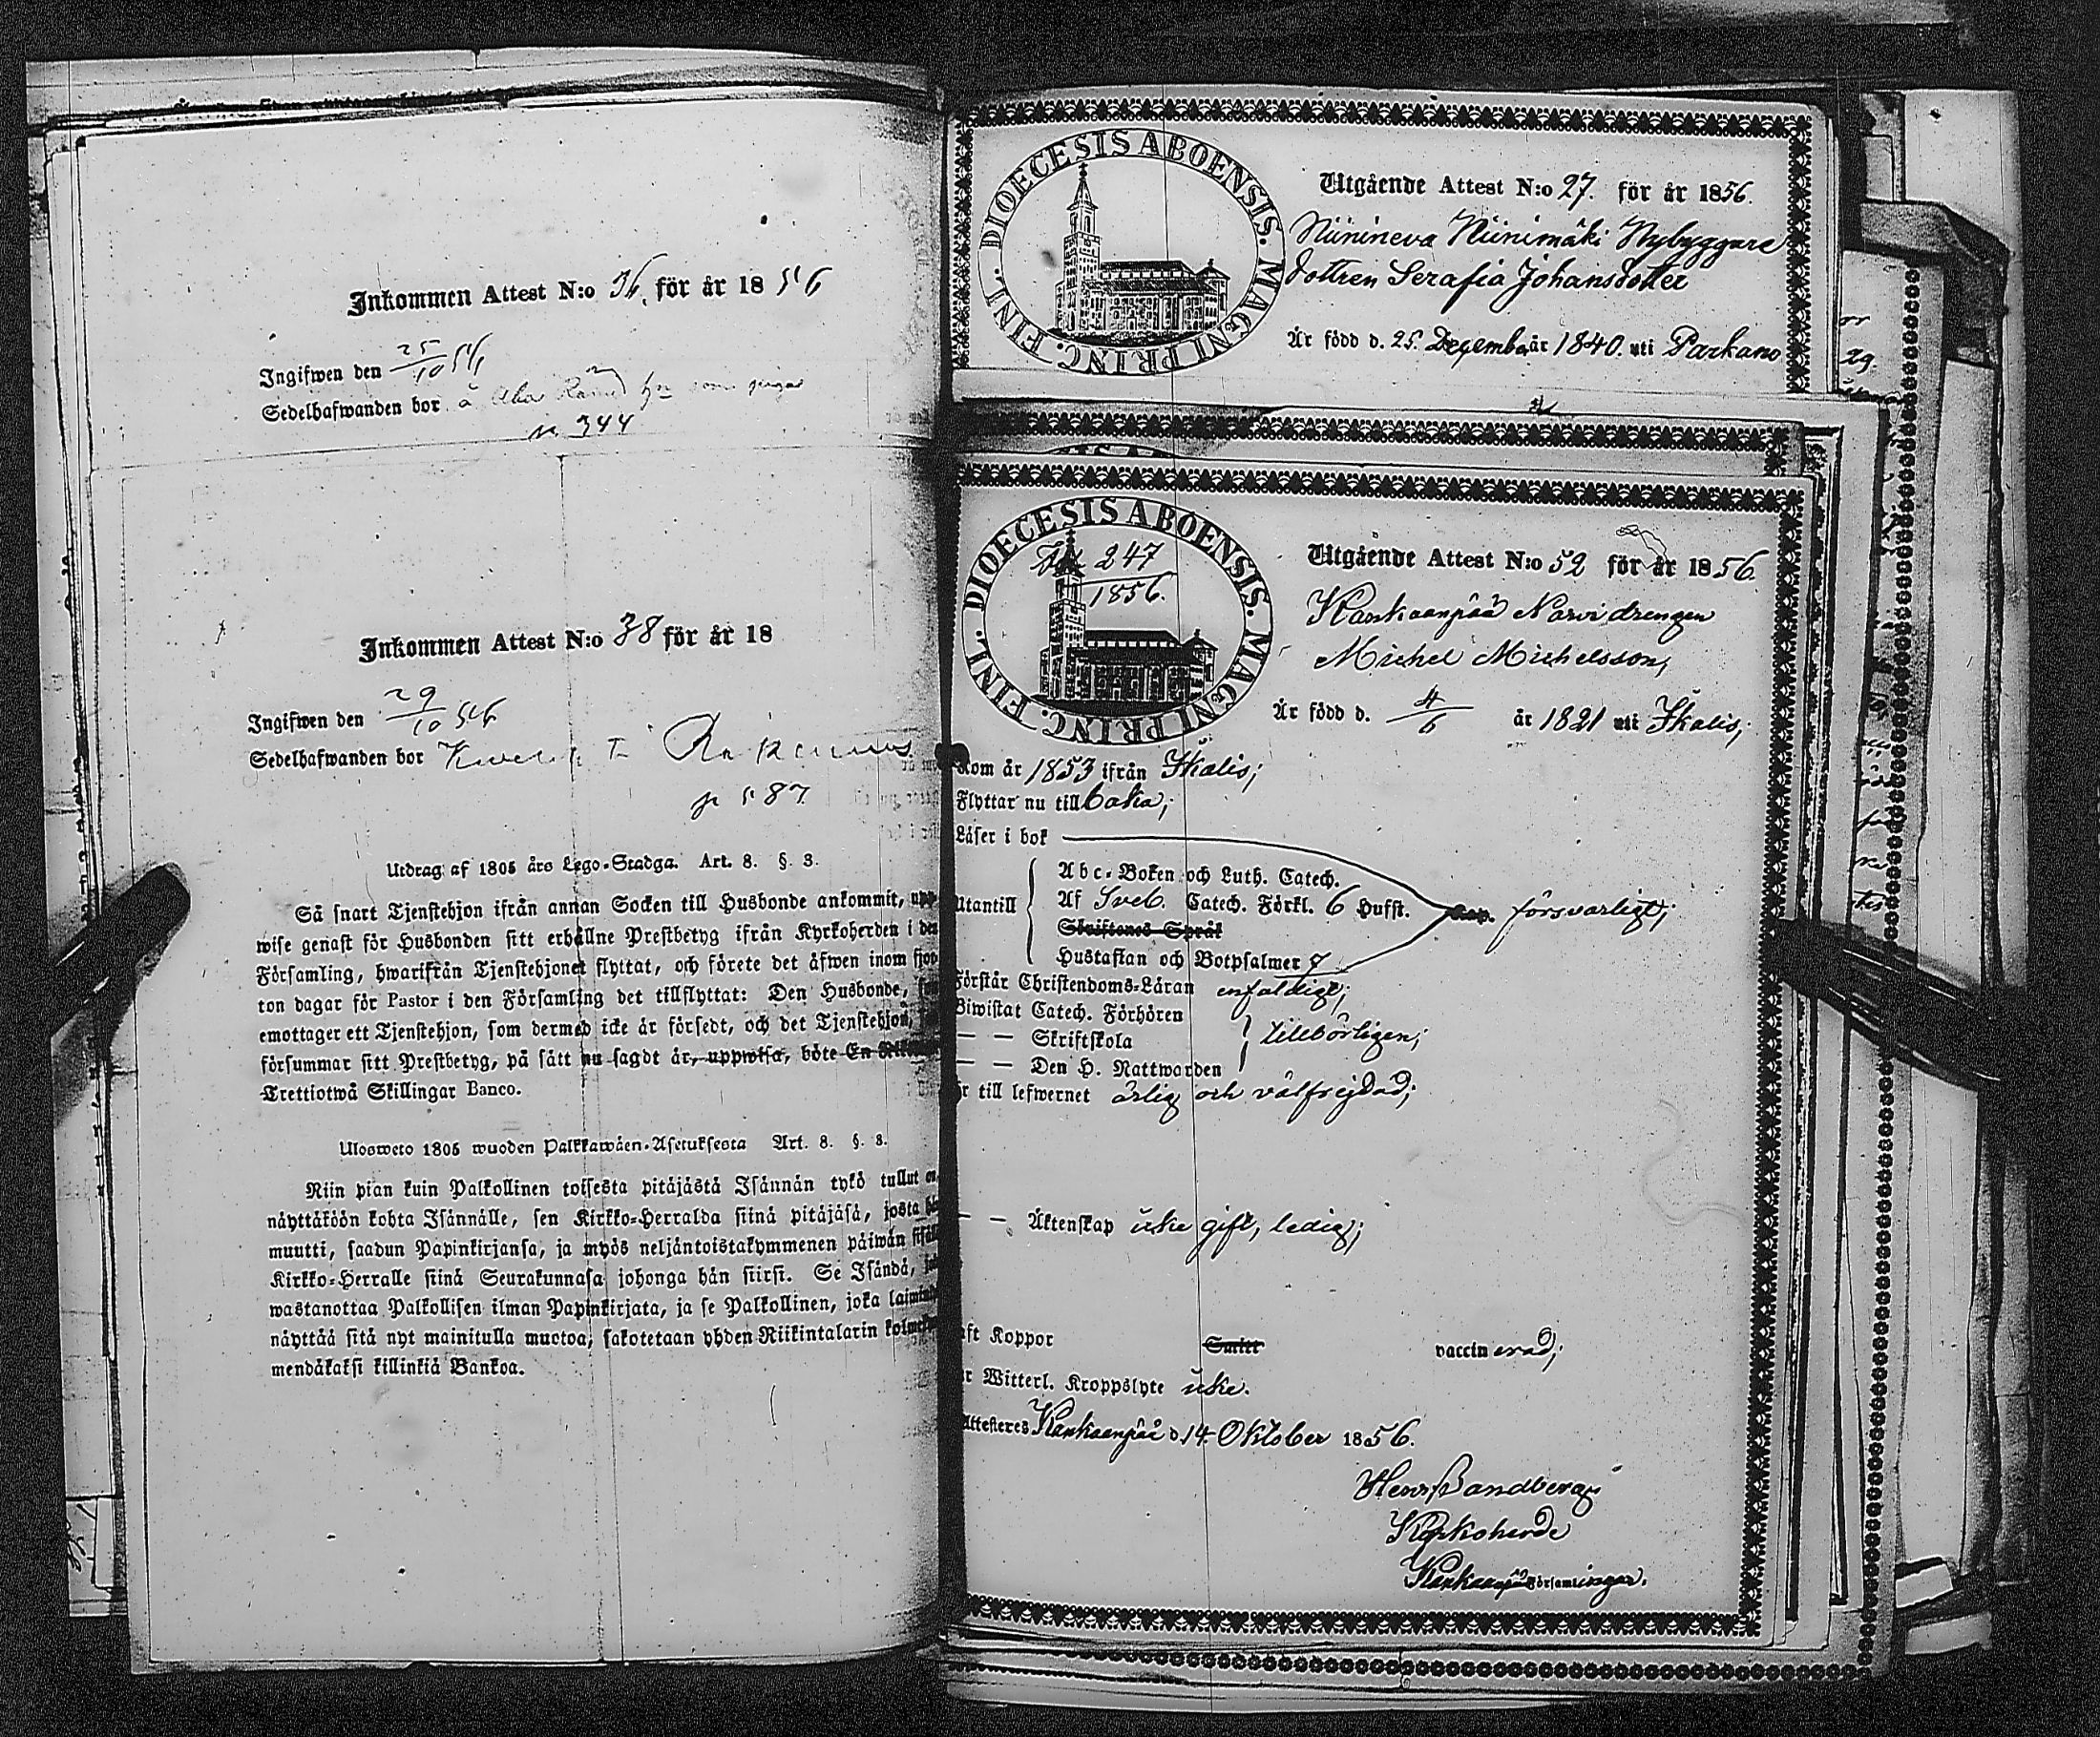 Inkommen Attest N:o 36. för år 1856
Ingifwen den 25/10 56
Sedelhafwanden bor å som piga
p. 344
Inkommen Attest N:o 38 för år 18
Ingifwen den 29/10 56
Sedelhafwanden bor
p 587
Utdrag af 1805 års Lego-Stadga. Art. 8. §. 3.
Så snart Tjenstehjon ifrån annan Socken till Husbonde ankommit, upp-
wise genast för Husbonden sitt erhållne Prestbetyg ifrån Kyrkoherden i den
Församling, hwarifrån Tjenstehjonet flyttat, och förete det äfwen inom fjor-
ton dagar för Pastor i den Församling det tillflyttat: Den Husbonde,
emottager ett Tjenstehjon, som dermed icke är försedt, och det Tjenstehjon,
försummar sitt Prestbetyg, på sätt nu sagdt är, uppwisa, böte En
Trettiotwå Skillingar Banco.
Ulosweto 1805 wuoden Palkkawäen-Asetuksesta Art. 8. §. 3.
Niin pian kuin Palkollinen toisesta pitäjästä Isännän tykö tullut on,
näyttäköön kohta Isännälle, sen Kirkko-Herralda siinä pitäjäsä, josta hän
muutti, saadun Papinkirjansa, ja myös neljäntoistakymmenen päiwän sisällä
Kirkko-Herralle siinä Seurakunnasa johonga hän siirsi. Se Isändä,
wastanottaa Palkollisen ilman Papinkirjata, ja se Palkollinen, joka
näyttää sitä nyt mainitulla muotoa, sakotetaan yhden Riikintalarin
mendäkaksi killinkiä Bankoa.
DIOECESIS ABOENSIS. MAGNI PRINC. FINL.
Utgående Attest N:o 27. för år 1856.
Niinineva Niinimäki Nybyggare
dottren Serafia Johansdotter
Är född d. 25. December år 1840. uti Parkano
DIOECESIS ABOENSIS. MAGNI PRINC. FINL.
247
1856.
Utgående Attest N:o 52 för år 1856.
Kankaanpää Narvi drengen
Michel Michelsson,
Är född d. 4/6 år 1821 uti Ikalis;
Kom år 1853 ifrån Ikalis;
Flyttar nu till baka;
Läser i bok
Abc-Boken och Luth. Catech.
Utantill Af Sveb. Catech. Förkl. 6 Hufst. Cap. försvarligt;
Skriftenes Språk
Hustaflan och Botpsalmer 7
Förstår Christendoms-Läran enfaldigt;
Biwistat Catech. Förhören
— — Skriftskola tillbörligen;
— — Den H. Nattwarden
är till lefwernet ärlig och välfrejdad;
— — Äktenskap icke gift, ledig;
haft Koppor vaccinerad;
Witterl. Kroppslyte icke.
Attesteres Kankaanpää d. 14 Oktober 1856.
Henr Sandberg
Kyrkoherde
Kankaanpää Församlingar.